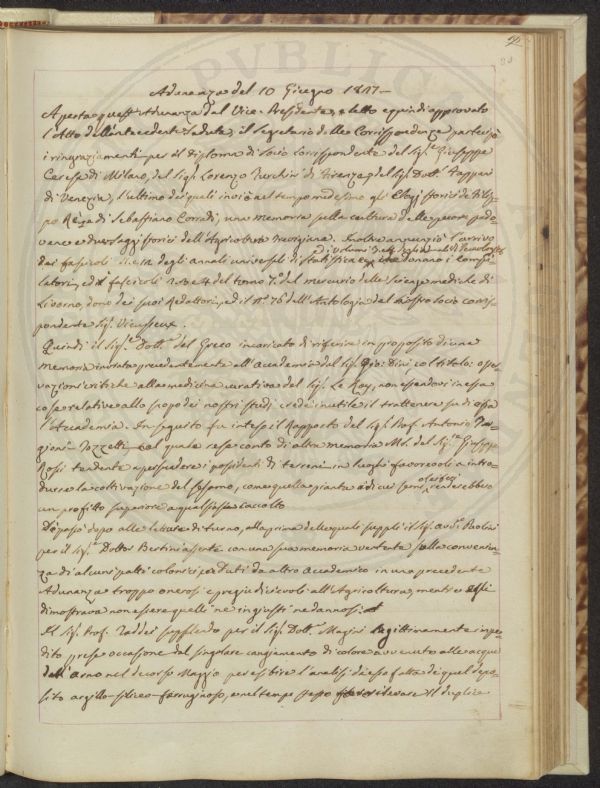 Adunanza del 10 Giugno 1827 –
Aperta quest'Adunanza dal Vice-Presidente, e letto e quindi approvato
l'Atto dell'antecedente Seduta, il Segretario delle Corrispondenze partecipò
i ringraziamenti per il diploma di Socio Corrispondente del Sig.r Giuseppe
Ceresa di Milano, del Sig. Lorenzo Turchini di Firenze, e del Sig. Dott. Zappari
di Venezia, l'ultimo dei quali inviò nel tempo medesimo gli Elogj Storici di Filip-
po Re, e di Sebastiano Corradi, una memoria sulla cultura delle pecore pado-
vane e due saggj storici dell'Agricoltura Trevigiana. Inoltre annunziò l'arrivo
dei fascicoli degli annali universali di Statistica, che donano i Compi-
latori, ed i fascicoli del tomo 7.o del mercurio delle scienze mediche di
Livorno, dono dei suoi Redattori, ed il N.o 76 dell'Antologia del nostro socio corris-
pondente Sig. Vieusseux.
Quindi il Sig.r Dott. del Greco incaricato di riferire in proposito di una
memoria inviata precedentemente all'Accademia dal Sig. Gio: Dini col titolo: osser-
vazioni critiche alla medicina curativa del Sig. Le Roy, non essendovi in essa
cose relative allo scopo dei nostri studj crede inutile il trattenere su di essa
l'Accademia. In seguito fu inteso il Rapporto del Sig. Prof. Antonio Tar-
gioni-Tozzetti, col quale rese conto di altra memoria MS. del Sig.r Giuseppe
Rossi tendente a persuadere i possidenti di terreni in luoghi favorevoli a intro-
durre la coltivazione del sesamo, come quella pianta di cui i semi oleosi renderebbero
un profitto superiore a qualsisia raccolto
Di poi passò dopo alle letture di turno, alla prima delle quali supplì il Sig. Avv. Paolini
per il Sig.r Dottor Bertini assente con una sua memoria vertente sulla convenien-
za di alcuni patti colonici creduti da altro Accademico in una precedente
Adunanza troppo onerosi e pregiudicevoli all'Agricoltura, mentre esso
dimostrava non essere quelli nè ingiusti nè dannosi.
Il Sig. Prof. Taddei supplendo per il Sig. Dott. Magini legittimamente impe-
dito, prese occasione dal singolare cangiamento di colore avvenuto alle acque
dell'Arno nel decorso Maggio per esibire l'analisi da esso fatta di quel depo-
sito argillo-siliceo-ferruginoso, e nel tempo stesso rilevare il duplice